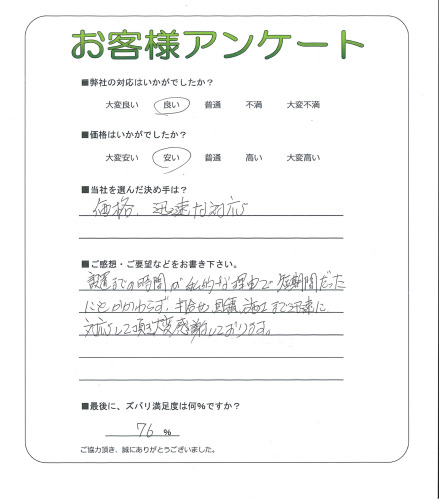 お客様アンケート
■弊社の対応はいかがでしたか？
大変良い 良い 普通 不満 大変不満
■価格はいかがでしたか？
大変安い 安い 普通 高い 大変高い
■当社を選んだ決め手は？
価格、迅速な対応
■ご感想・ご要望などをお書き下さい。
設置までの時間が私的な理由で短期間だった
にもかかわらず、打合せ、見積、施工まで迅速に
対応して頂き大変感謝しております。
■最後に、ズバリ満足度は何%ですか？
76 %
ご協力頂き、誠にありがとうございました。